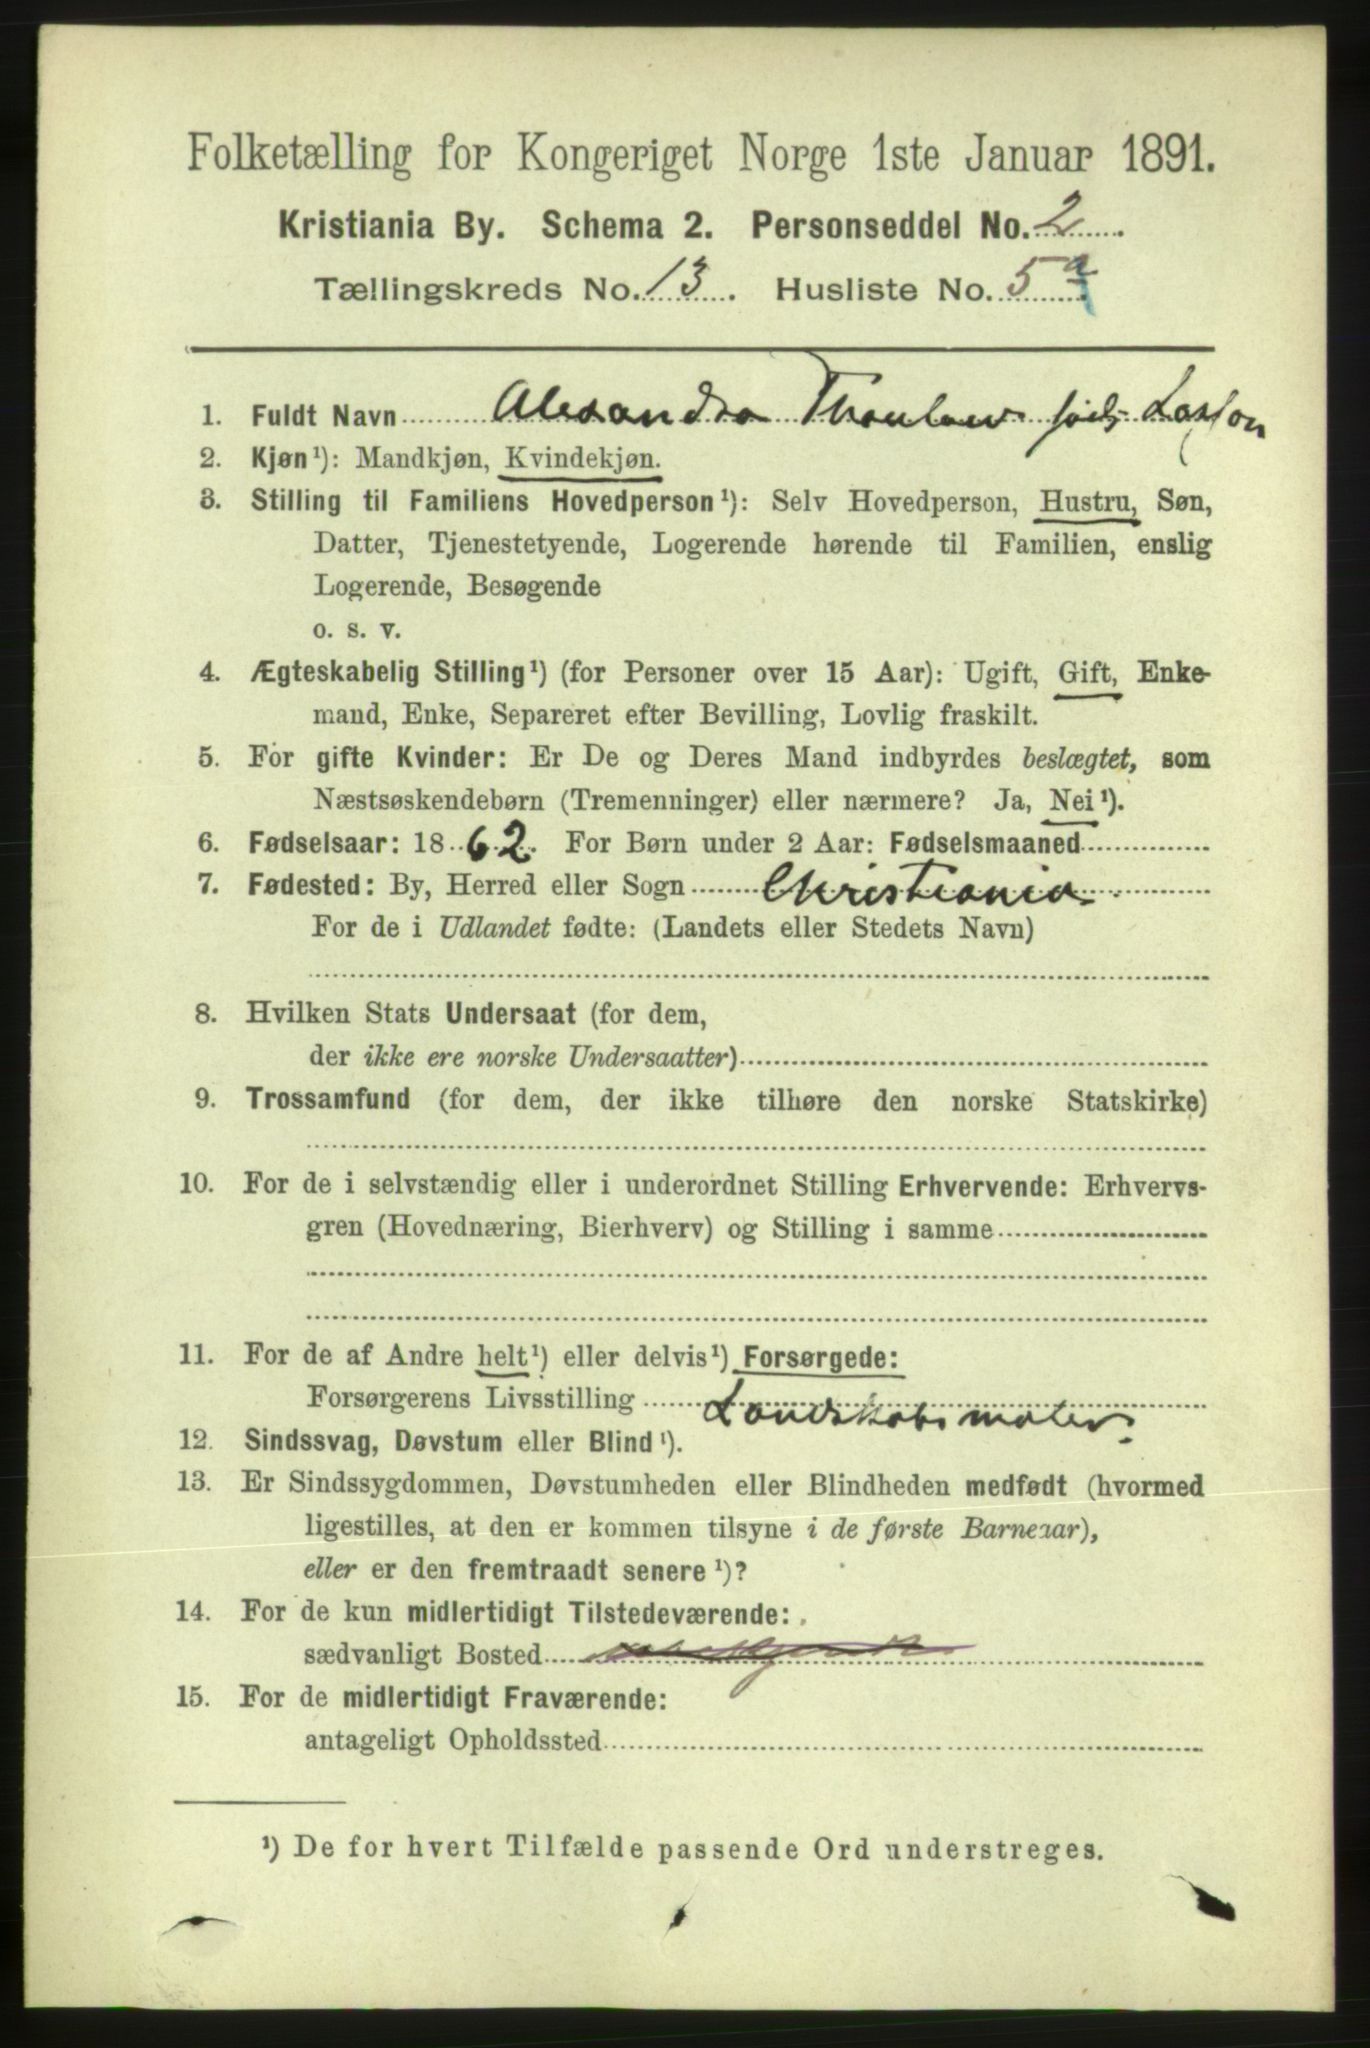 Folketælling for Kongeriget Norge 1ste Januar 1891.
Kristiania By. Schema 2. Personseddel No. 2
Tællingskreds No. 13. Husliste No. 5a
1. Fuldt Navn Alexandra Thaulow født Lasson
2. Kjøn¹): Mandkjøn, Kvindekjøn.
3. Stilling til Familiens Hovedperson¹): Selv Hovedperson, Hustru, Søn,
Datter, Tjenestetyende, Logerende hørende til Familien, enslig
Logerende, Besøgende
o. s. v.
4. Ægteskabelig Stilling¹) (for Personer over 15 Aar): Ugift, Gift, Enke-
mand, Enke, Separeret efter Bevilling, Lovlig fraskilt.
5. For gifte Kvinder: Er De og Deres Mand indbyrdes beslægtet, som
Næstsøskendebørn (Tremenninger) eller nærmere? Ja, Nei¹).
6. Fødselsaar: 1862. For Børn under 2 Aar: Fødselsmaaned
7. Fødested: By, Herred eller Sogn Christiania.
For de i Udlandet fødte: (Landets eller Stedets Navn)
8. Hvilken Stats Undersaat (for dem,
der ikke ere norske Undersaatter)
9. Trossamfund (for dem, der ikke tilhøre den norske Statskirke)
10. For de i selvstændig eller i underordnet Stilling Erhvervende: Erhvervs-
gren (Hovednæring, Bierhverv) og Stilling i samme
11. For de af Andre helt¹) eller delvis¹) Forsørgede:
Forsørgerens Livsstilling Landskabsmaler.
12. Sindssvag, Døvstum eller Blind¹).
13. Er Sindssygdommen, Døvstumheden eller Blindheden medfødt (hvormed
ligestilles, at den er kommen tilsyne i de første Barneaar),
eller er den fremtraadt senere¹)?
14. For de kun midlertidigt Tilstedeværende:
sædvanligt Bosted
15. For de midlertidigt Fraværende:
antageligt Opholdssted
¹) De for hvert Tilfælde passende Ord understreges.